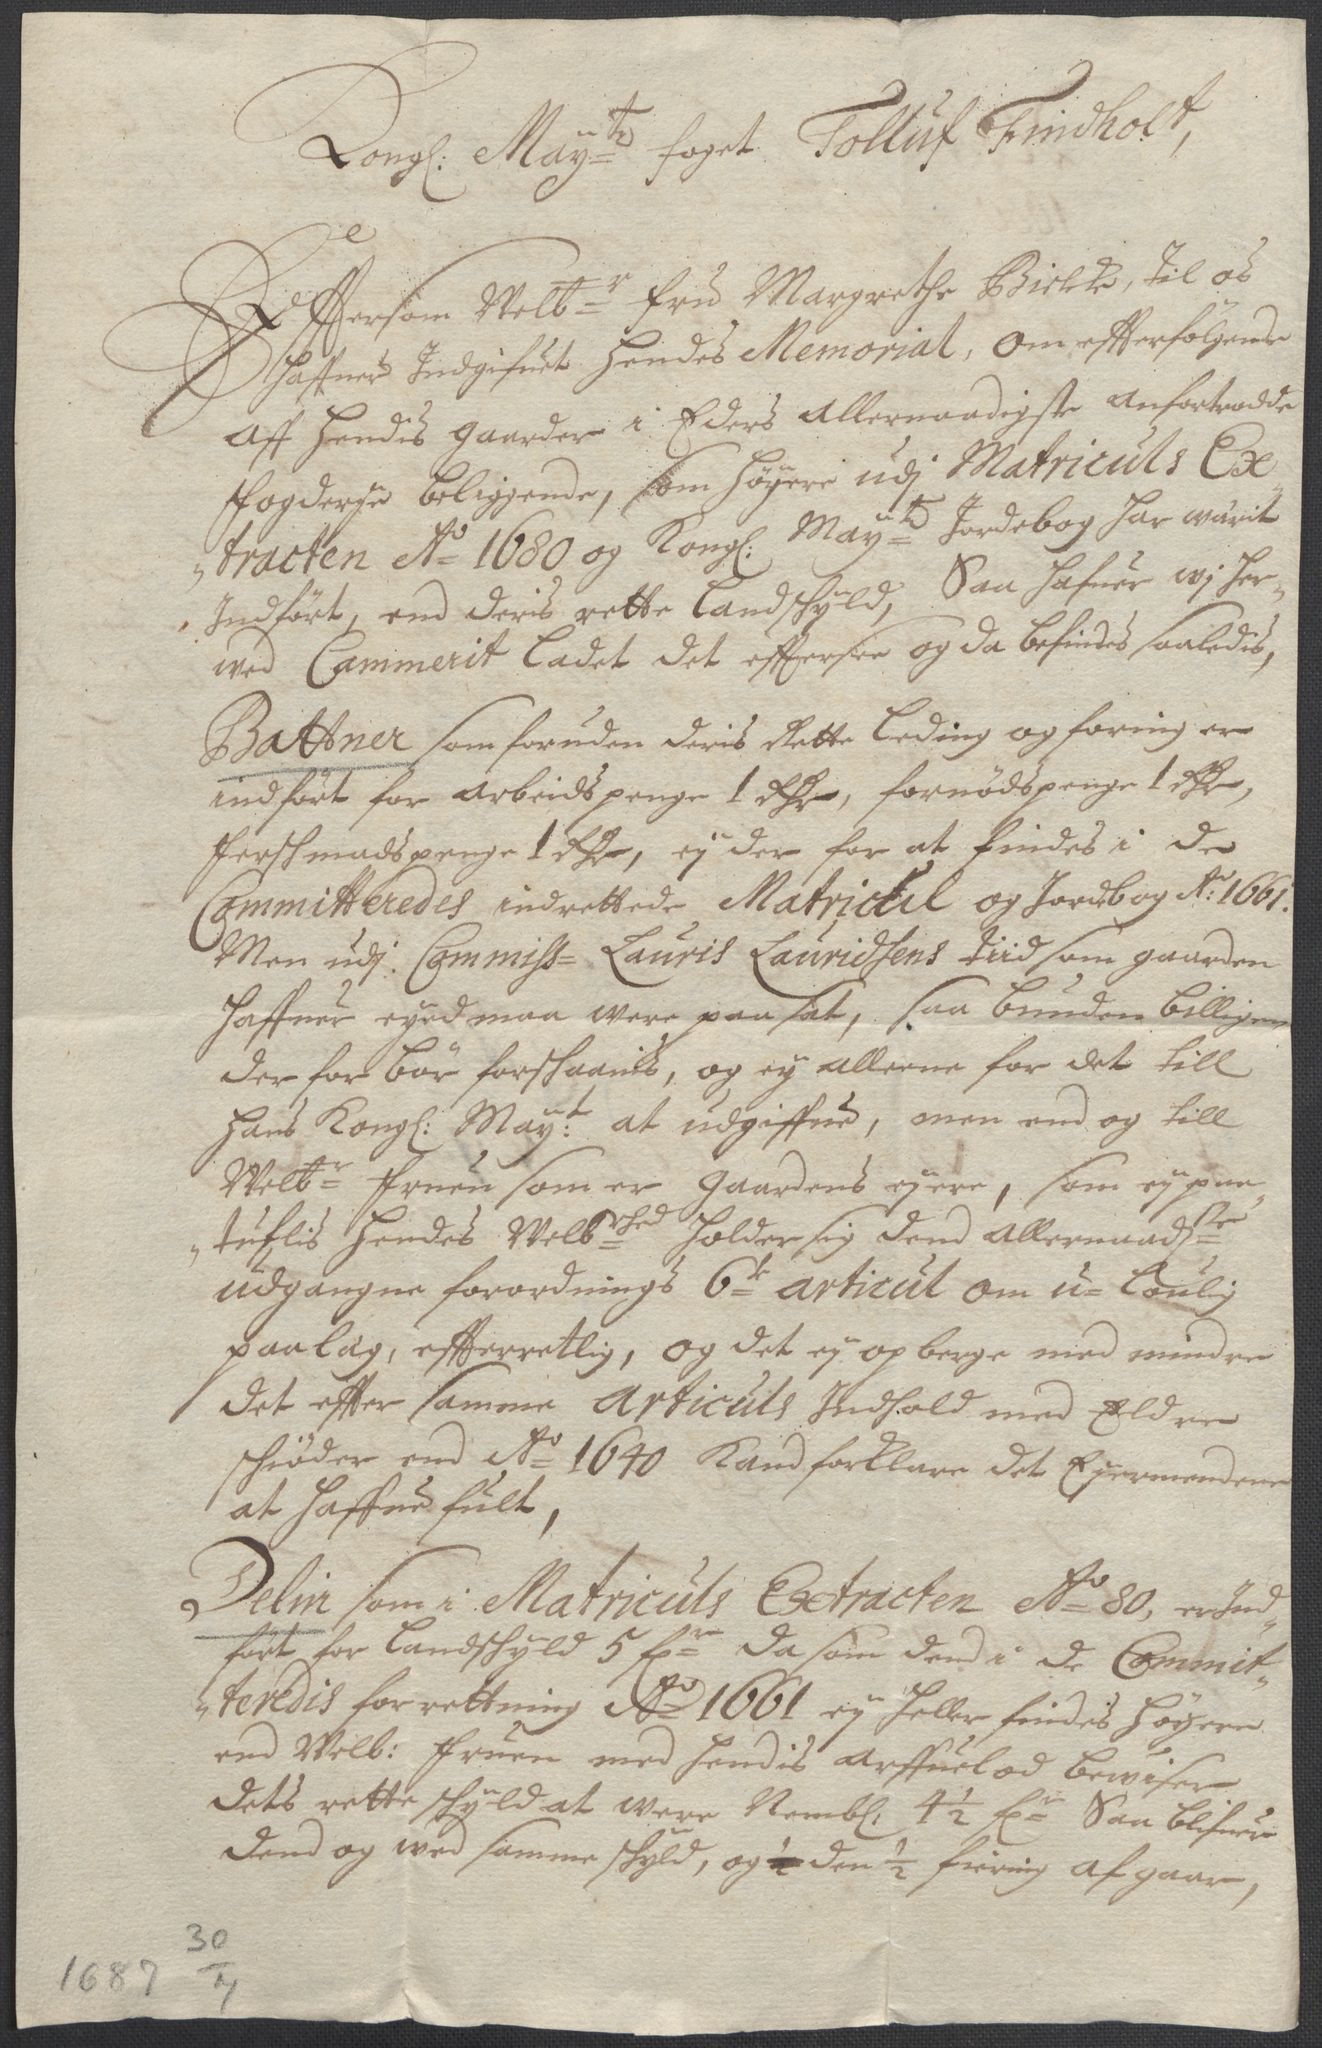 Kongl: May:ts foget Tolluf Findholt,
Effersom Welb:r fru Margrethe Bielke, til os
haffuer Indgifuet hendes Memorial, om effterfølgende
aff hendis gaarder i Eders allernaadigste anfortrodde
fogderje beliggende, som høyere udj Matriculs Ex¬
¬tracten A:o 1680 og Kongl: May:ts Jordebog har wärit
Indført, end deris rette landschyld, Saa hafuer wj her¬
wed Cammerit ladet det effersee og da befindes saaledis,
Battner som foruden deris rette leding og foring er
indført for arbeidspenge 1 Rdr, fornødspenge 1 Rdr,
ferschmadspenge 1 Rdr, ej der for at findes i de
Committeredes indrettede Matricul og Jordebog A:o 1661.
Men udj Commiss= Lauris Lauridsens tiid som gaarden
haffuer eyed maa were paa sat, saa bunden billigen
der for bør forschaanis, og ey alleene for det till
hans Kongl: May:t at udgiffue, men end og till
Welb:r fruen som er gaardens eyere, som ey paa¬
¬tuflis hendes Welb:rhed holder sig dend allernaadste
udgangne forordnings 6:te articul om u= loulig
paalag, effterretlig, og det ej opberge med mindre
det effter samme articuls Indhold med Eldre
schiøder end A:o 1640 Kand forklare det Eyermendene
at haffue fult,
Delin som i Matriculs Extracten A:o 80, er Ind¬
ført for landschyld 5 da som dend i de Commit¬
¬teredis forrettning A:o 1661 ey heller findis høyere
end Welb: fruen med hendis arffuelod bewiser
dets rette schyld at were Nembl: 4½ Saa blifuer
dend og wed samme schyld, og den ½ fiering af gaar,
1687 30/4